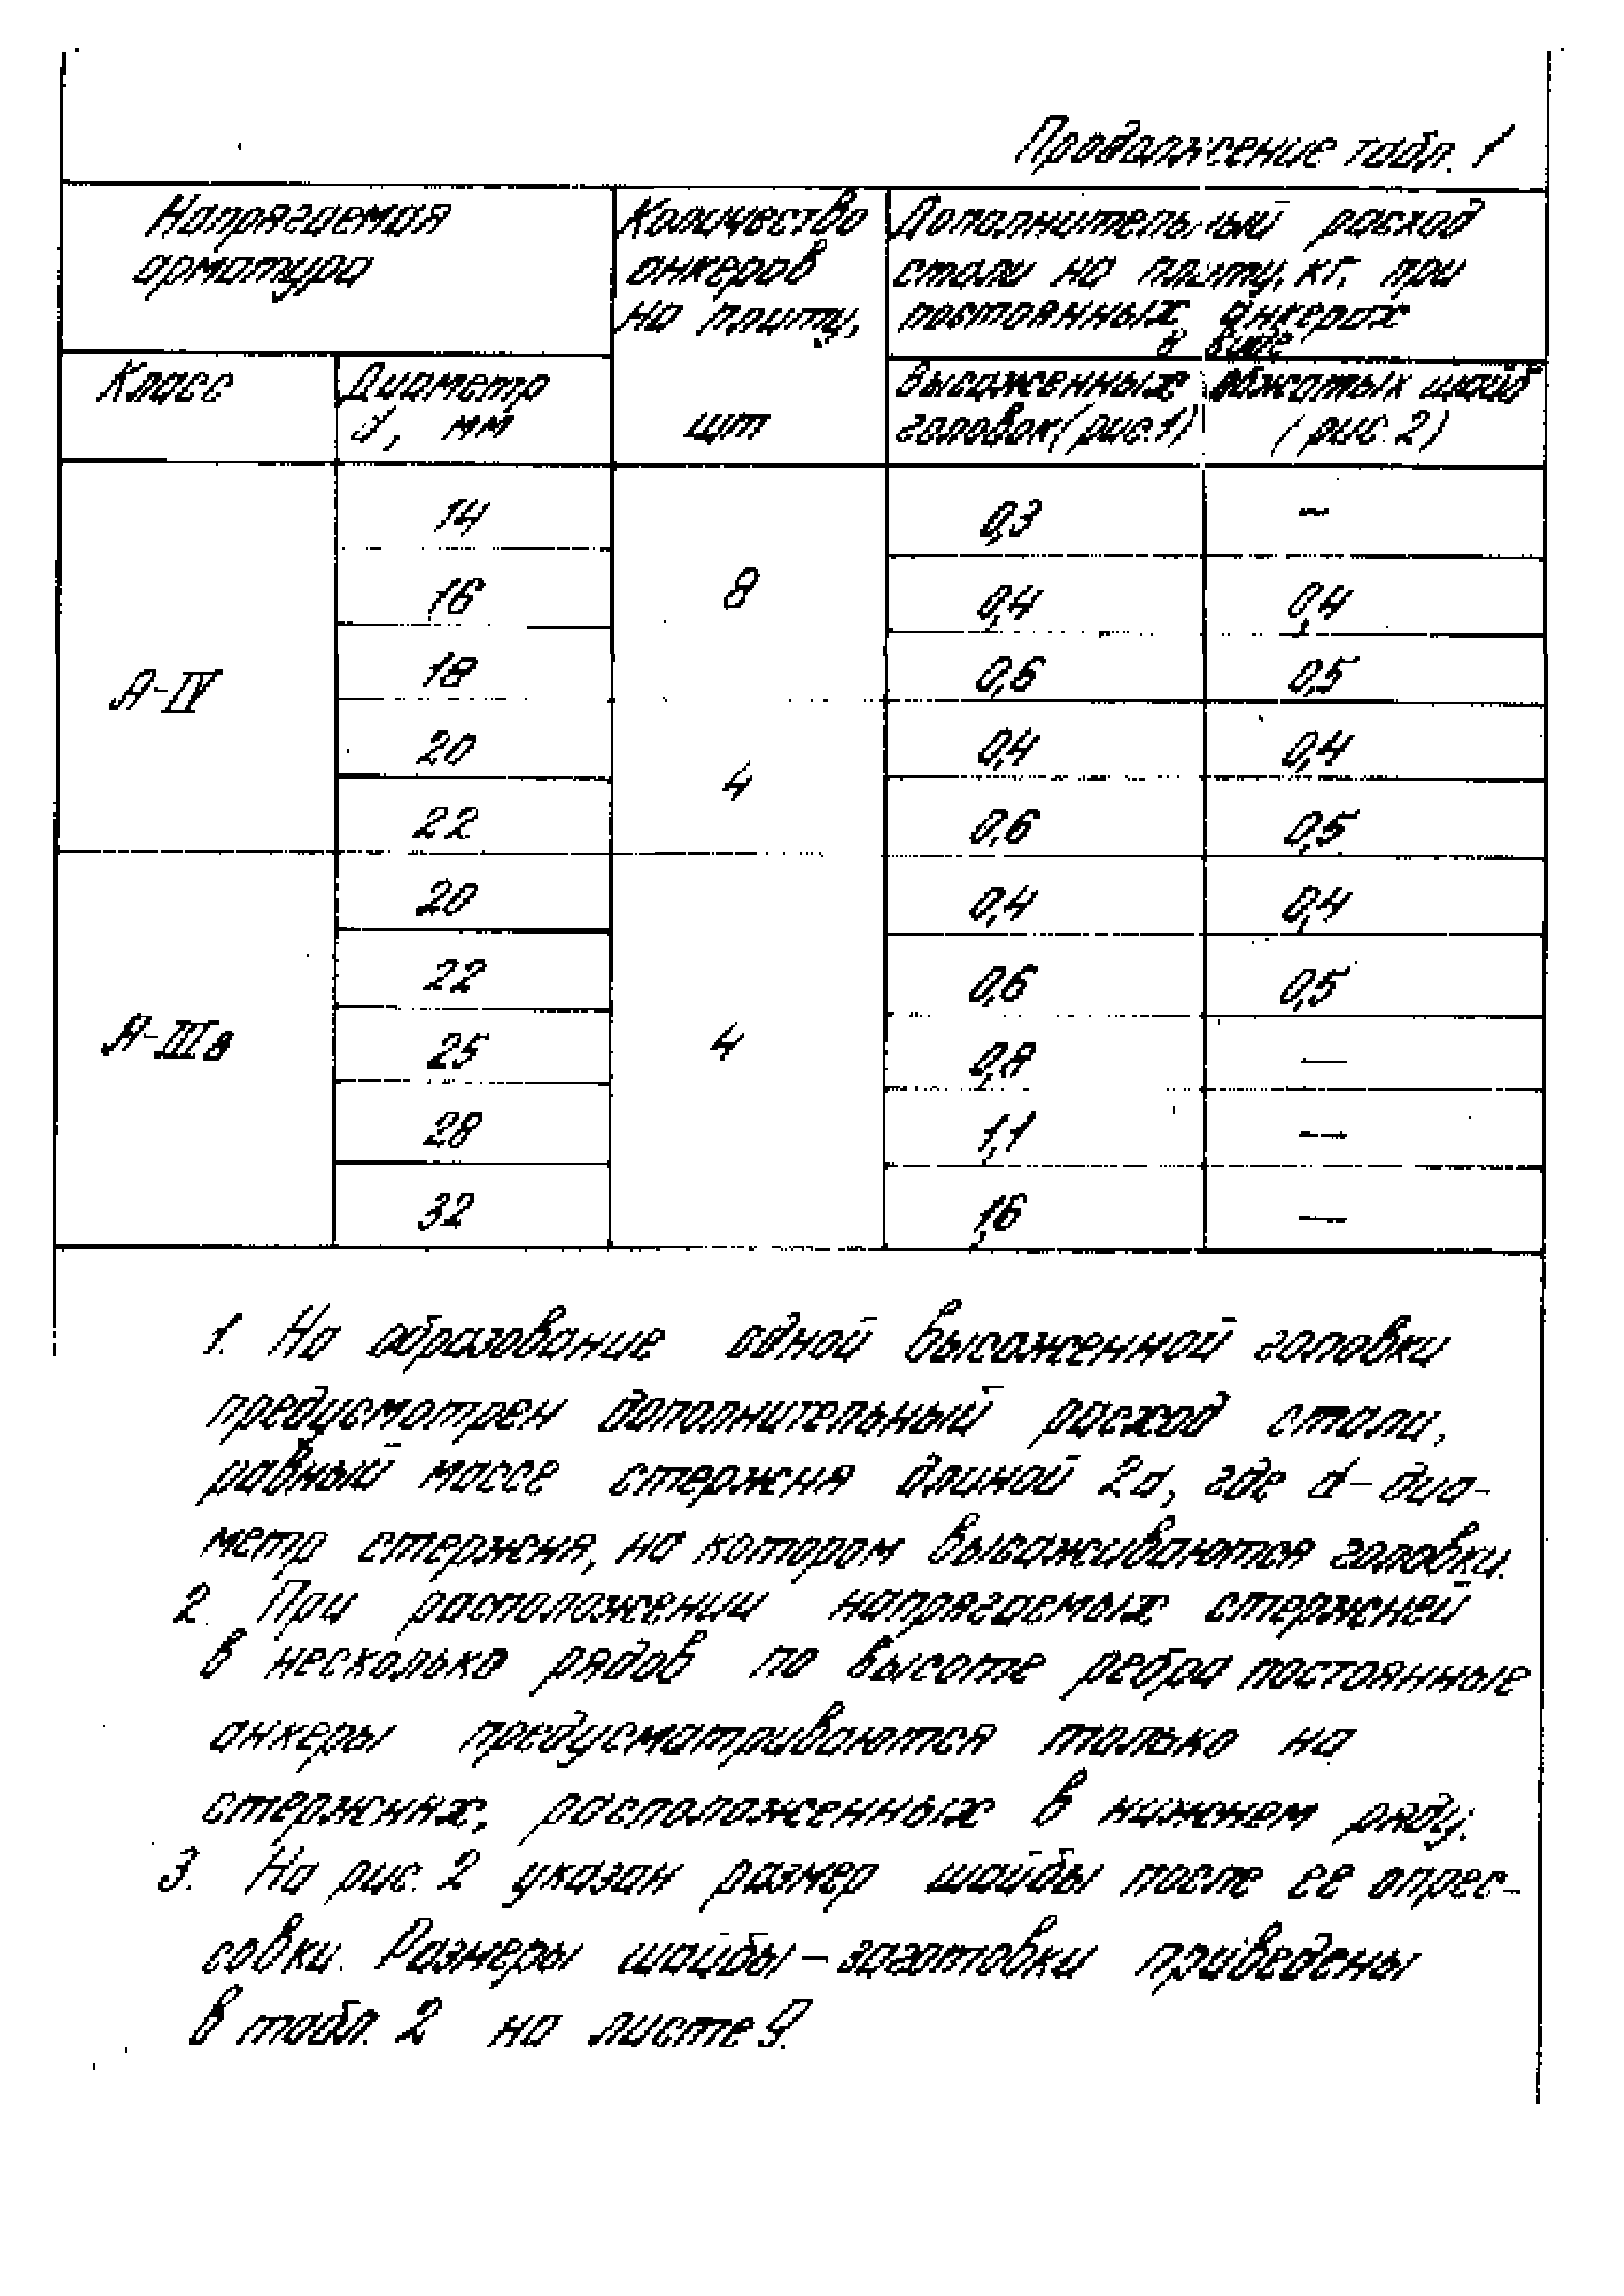 Продолжение табл. 1
Напрягаемая арматура
Количество анкеров на плиту, шт
Дополнительный расход
стали на плиту, кг, при
постоянных анкерах
в виде
Класс
Диаметр d, мм
высаженных головок (рис. 1)
обжатых шайб (рис. 2)
А-IV
14 8 0,3 –
16 0,4 0,4
18 0,6 0,5
20 4 0,4 0,4
22 0,6 0,5
А-IIIв
20 4 0,4 0,4
22 0,6 0,5
25 0,8 —
28 1,1 —
32 1,6 —
1. На образование одной высаженной головки
предусмотрен дополнительный расход стали,
равный массе стержня длиной 2d, где d – диа-
метр стержня, на котором высаживаются головки.
2. При расположении напрягаемых стержней
в несколько рядов по высоте ребра постоянные
анкеры предусматриваются только на
стержнях, расположенных в нижнем ряду.
3. На рис. 2 указан размер шайбы после ее опрес-
совки. Размеры шайбы – заготовки приведены
в табл. 2 на листе 9.